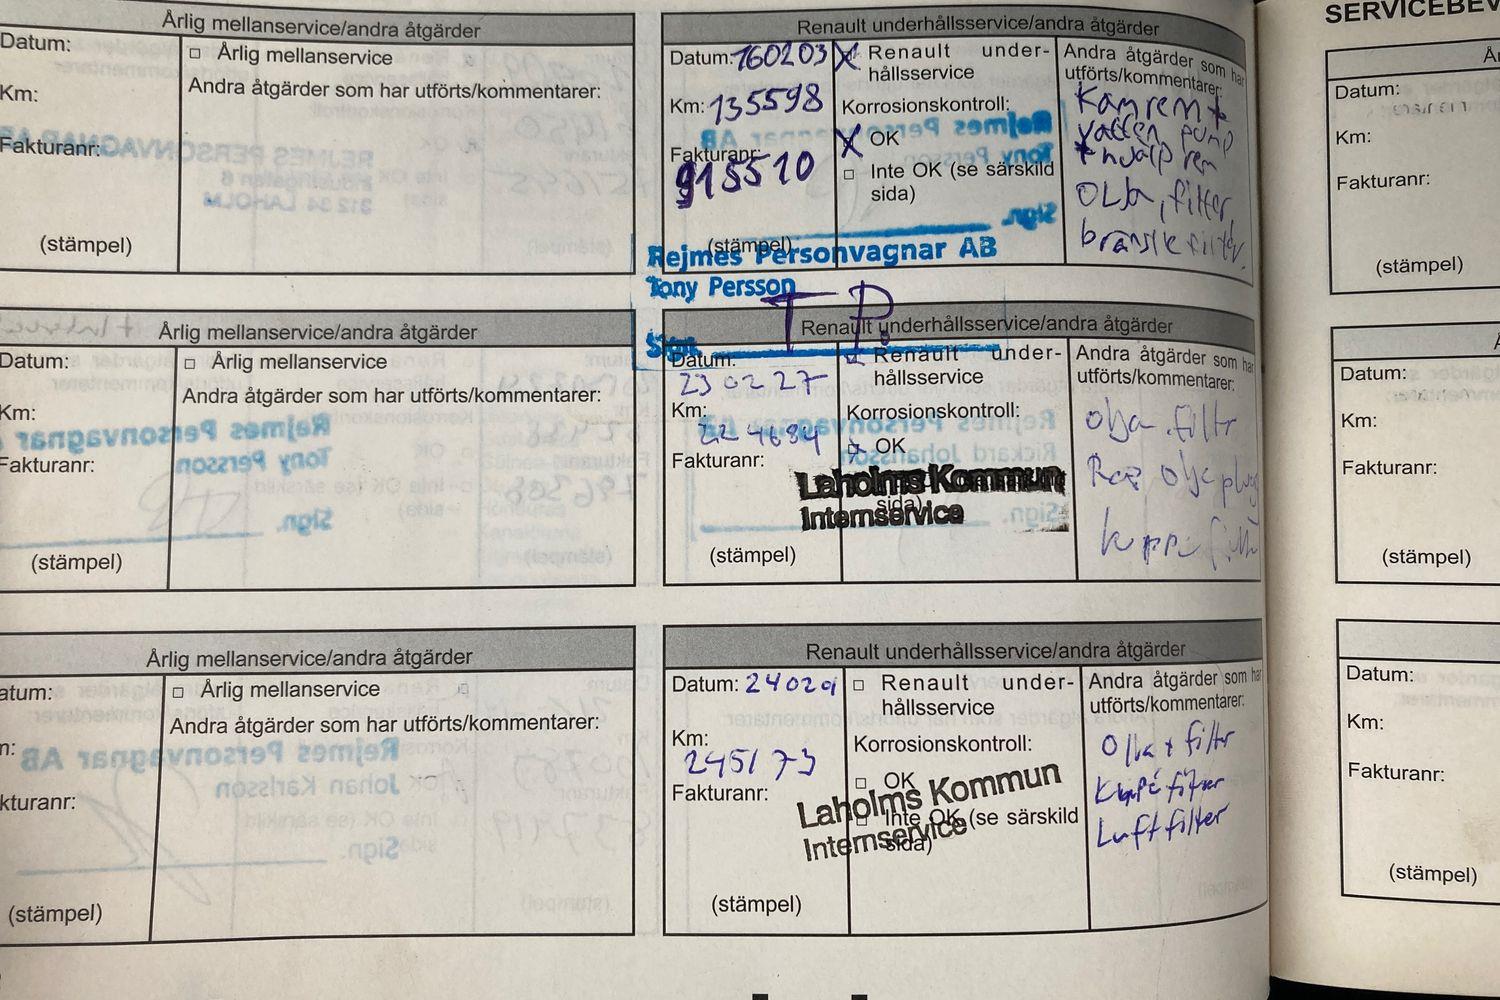 SERVICEBEV
Årlig mellanservice/andra åtgärder
Datum:
□ Årlig mellanservice
Andra åtgärder som har utförts/kommentarer:
Km:
Fakturanr:
(stämpel)
Renault underhållsservice/andra åtgärder
Datum: 160203
Renault under-
hållsservice
Km: 135598
Korrosionskontroll:
OK
Fakturanr:
915510
□ Inte OK (se särskild
sida)
(stämpel)
Andra åtgärder som har
utförts/kommentarer:
Kamrem +
vatten pump
+ hjälp rem
Olja, filter,
bränslefilter.
Rejmes Personvagnar AB
Tony Persson
Sign.
T.P.
Årlig mellanservice/andra åtgärder
Datum:
□ Årlig mellanservice
Andra åtgärder som har utförts/kommentarer:
Km:
Fakturanr:
(stämpel)
Renault underhållsservice/andra åtgärder
Datum:
23 02 27
Renault under-
hållsservice
Km:
Korrosionskontroll:
OK
Fakturanr:
sida)
Laholms Kommun
Internservice
(stämpel)
Andra åtgärder som har
utförts/kommentarer:
olja
Årlig mellanservice/andra åtgärder
atum:
□ Årlig mellanservice
Andra åtgärder som har utförts/kommentarer:
kturanr:
(stämpel)
Renault underhållsservice/andra åtgärder
Datum: 24020
□ Renault under-
hållsservice
Km:
245173
Korrosionskontroll:
□ OK
Fakturanr:
□ Inte OK (se särskild
sida)
Laholms Kommun
Internservice
(stämpel)
Andra åtgärder som har
utförts/kommentarer:
Olja + filtr
Luftfilter
Datum:
Km:
Fakturanr:
(stämpel)
Datum:
Km:
Fakturanr:
(stämpel)
Datum:
Km:
Fakturanr:
(stämpel)